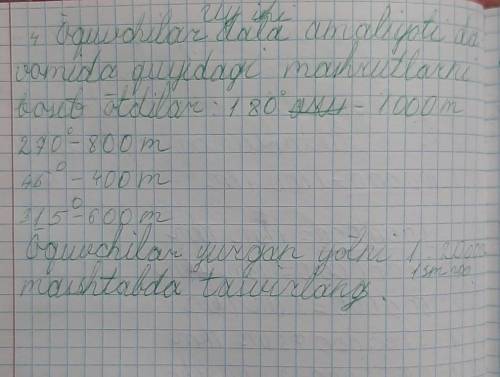 Uy ishi
4 Oquvchilar dala amaliyoti da
vomida quyidagi mashrutlarni
bosib otdilar: 180° - 1000 m
270° - 800 m
45° - 400 m
315° - 600 m
Oquvchilar yurgan yolni 1:
mashtabda tasvirlang.